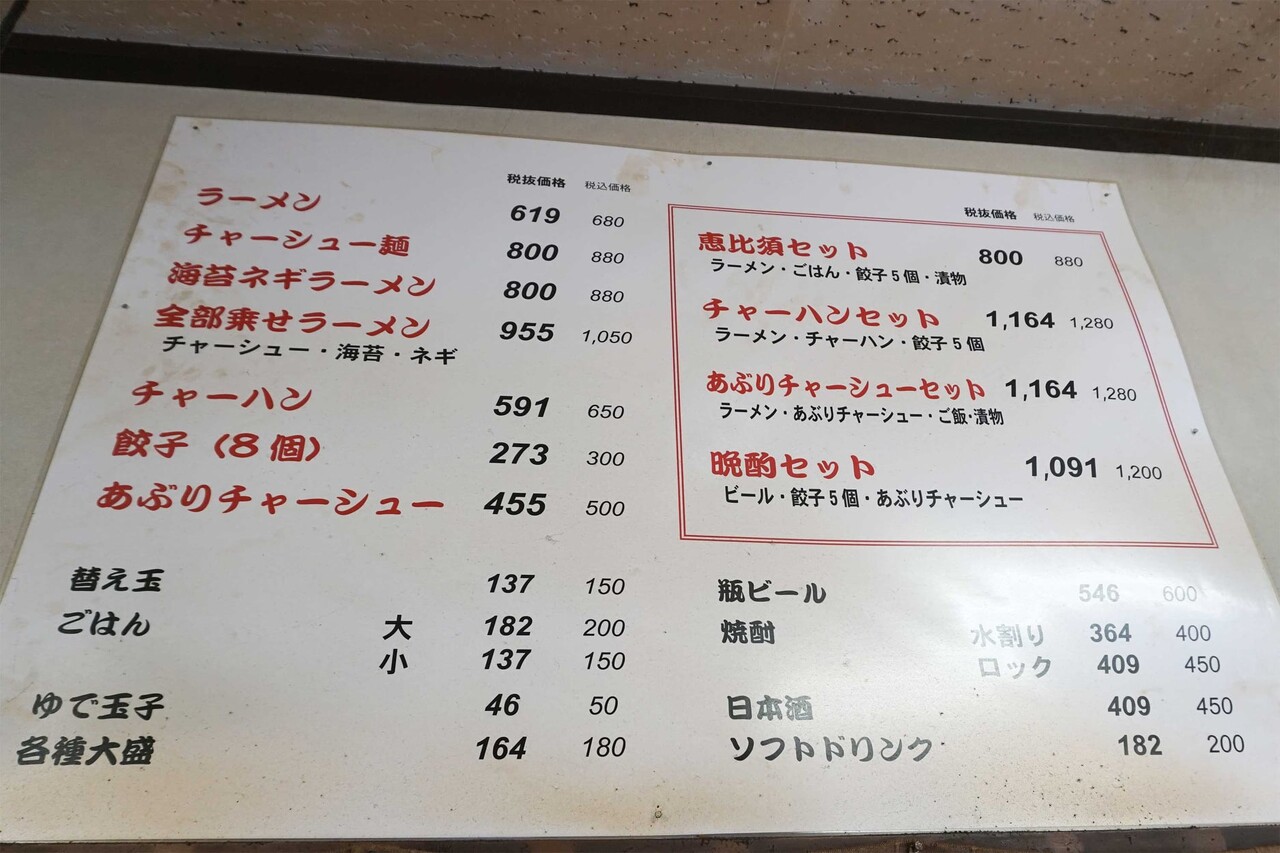 税抜価格 税込価格
ラーメン 619 680
チャーシュー麺 800 880
海苔ネギラーメン 800 880
全部乗せラーメン 955 1,050
チャーシュー・海苔・ネギ
チャーハン 591 650
餃子(8個) 273 300
あぶりチャーシュー 455 500
替え玉 137 150
ごはん 大 182 200
小 137 150
ゆで玉子 46 50
各種大盛 164 180
税抜価格 税込価格
恵比須セット 800 880
ラーメン・ごはん・餃子5個・漬物
チャーハンセット 1,164 1,280
ラーメン・チャーハン・餃子5個
あぶりチャーシューセット 1,164 1,280
ラーメン・あぶりチャーシュー・ご飯・漬物
晩酌セット 1,091 1,200
ビール・餃子5個・あぶりチャーシュー
瓶ビール 546 600
焼酎 水割り 364 400
ロック 409 450
日本酒 409 450
ソフトドリンク 182 200